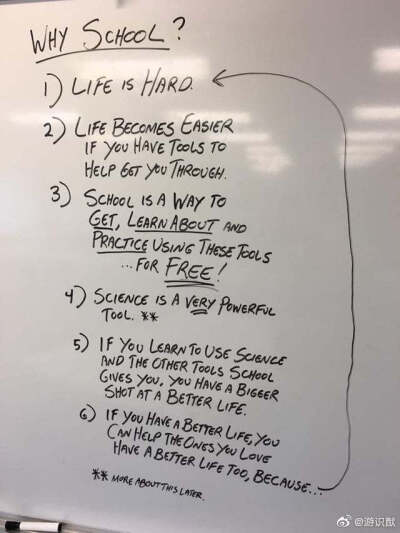 WHY SCHOOL?
1) LIFE IS HARD.
2) LIFE BECOMES EASIER
IF YOU HAVE TOOLS TO
HELP GET YOU THROUGH.
3) SCHOOL IS A WAY TO
GET, LEARN ABOUT AND
PRACTICE USING THESE TOOLS
...FOR FREE!
4) SCIENCE IS A VERY POWERFUL
TOOL. **
5) IF YOU LEARN TO USE SCIENCE
AND THE OTHER TOOLS SCHOOL
GIVES YOU, YOU HAVE A BIGGER
SHOT AT A BETTER LIFE.
6) IF YOU HAVE A BETTER LIFE, YOU
CAN HELP THE ONES YOU LOVE
HAVE A BETTER LIFE TOO, BECAUSE...
** MORE ABOUT THIS LATER.
@游识猷